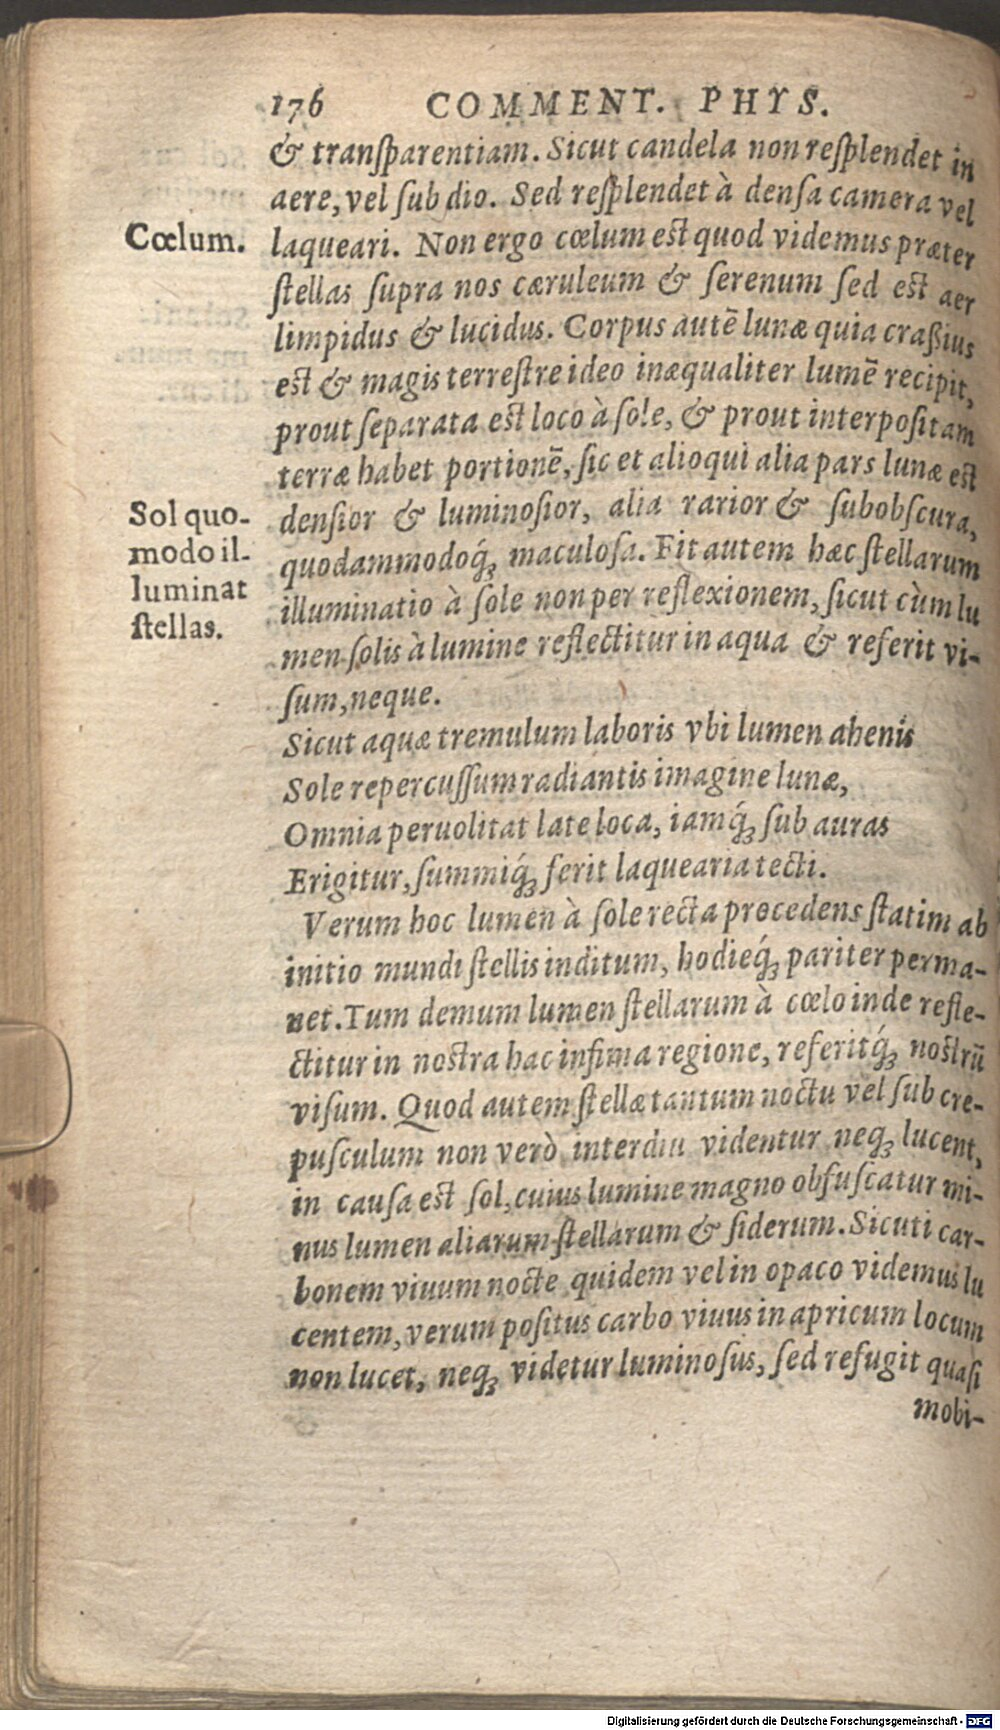 176 COMMENT. PHYS.
& tranſparentiam. Sicut candela non reſplendet in
aere, vel ſub dio. Sed reſplendet à denſa camera vel
Cœlum.
laqueari. Non ergo cœlum est quod videmus præter
ſtellas ſupra nos cæruleum & ſerenum ſed est aer
limpidus & lucidus. Corpus autē lunæ quia craßius
est & magis terreſtre ideo inæqualiter lumē recipit,
prout ſeparata est loco à ſole, & prout interpoſitam
terræ habet portionē, ſic et alioqui alia pars lunæ est
Sol quo-
modo il-
luminat
ſtellas.
denſior & luminoſior, alia rarior & ſubobſcura,
quodammodoq́ꝫ maculoſa. Fit autem hæc ſtellarum
illuminatio à ſole non per reflexionem, ſicut cùm lu
men ſolis à lumine reflectitur in aqua & referit vi-
ſum, neque.
Sicut aquæ tremulum laboris vbi lumen ahenis
Sole repercuſſum radiantis imagine lunæ,
Omnia peruolitat late loca, iamq́ꝫ ſub auras
Erigitur, ſummiq́ꝫ ferit laquearia tecti.
Verum hoc lumen à ſole recta procedens ſtatim ab
initio mundi ſtellis inditum, hodieq́ꝫ pariter perma-
net. Tum demum lumen ſtellarum à cœlo inde refle-
ctitur in noſtra hac infima regione, referitq́ꝫ noſtrū
viſum. Quod autem ſtellæ tantum noctu vel ſub cre-
puſculum non verò interdiu videntur neqꝫ lucent,
in cauſa est ſol, cuius lumine magno obfuſcatur mi-
nus lumen aliarum ſtellarum & ſiderum. Sicuti car-
bonem viuum nocte quidem vel in opaco videmus lu
centem, verum poſitus carbo viuus in apricum locum
non lucet, neqꝫ videtur luminoſus, ſed refugit quaſi
mobi-
Digitalisierung gefördert durch die Deutsche Forschungsgemeinschaft - DFG